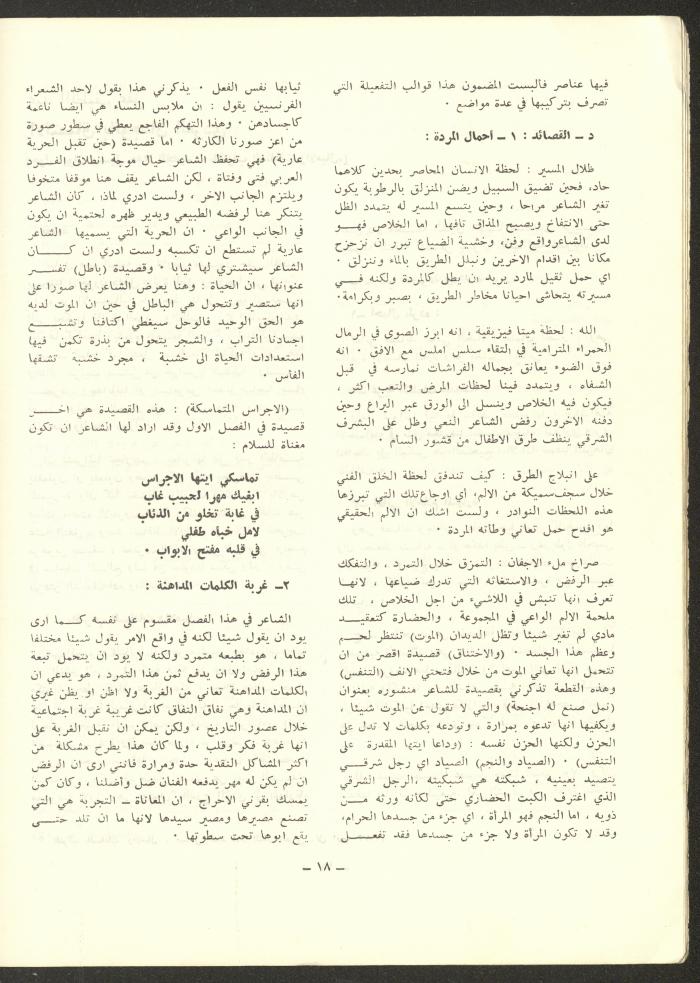 فيها عناصر فالبست المضمون هذا قوالب التفعيلة التي
تصرف بتركيبها في عدة مواضع .
د ــ القصائد : ١ ــ أحمال المردة :
ظلال المسير : لحظة الانسان المحاصر بحدين كلاهما
حاد، فحين تضيق السبيل ويضن المنزلق بالرطوبة يكون
ثغر الشاعر مراحا ، وحين يتسع المسير له يتمدد الظل
حتى الانتفاخ ويصبح المذاق تافها ، اما الخلاص فهــو
لدى الشاعر واقع وفن، وخشية الضياع تبرر ان نزحزح
مكانا بين اقدام الاخرين ونبلل الطريق بالماء وننزلق .
اي حمل ثقيل لمارد يريد ان يطل كالمردة ولكنه فــي
مسيرته يتحاشى احيانا مخاطر الطريق ، بصبر وبكرامة.
الله : لحظة ميتا فيزيقية ، انه ابرز الصوى في الرمال
الحمراء المترامية في التقاء سلس املس مع الافق . انه
فوق الضوء يعانق بجماله الفراشات نمارسه في قبل
الشفاه ، ويتمدد فينا لحظات المرض والتعب اكثر ،
فيكون فيه الخلاص وينسل الى الورق عبر اليراع وحين
دفنه الاخرون رفض الشاعر النعي وظل على الشرف
الشرقي ينظف طرق الاطفال من قشور السام .
على انبلاج الطرق : كيف تندفق لحظة الخلق الفني
خلال سجف سميكة من الالم، أي اوجاع تلك التي تبرزها
هذه اللحظات النوادر ، ولست اشك ان الالم الحقيقي
هو افدح حمل تعاني وطأته المردة .
صراخ ملء الاجفان : التمزق خلال التمرد ، والتفكك
عبر الرفض ، والاستغاثه التي تدرك ضياعها ، لانهــا
تعرف انها تنبش في اللاشيء من اجل الخلاص ، تلك
ملحمة الالم الواعي في المجموعة ، والحضارة كتعقيــد
مادي لم تغير شيئا وتظل الديدان (الموت) تنتظر لحــم
وعظم هذا الجسد . (والاختناق) قصيدة اقصر من ان
تتحمل انها تعاني الموت من خلال فتحتي الانف (التنفس)
وهذه القطعة تذكرني بقصيدة للشاعر منشوره بعنوان
(نمل صنع له اجنحة) والتي لا تقول عن الموت شيئا ،
ويكفيها انها تدعوه بمرارة ، وتودعه بكلمات لا تدل على
الحزن ولكنها الحزن نفسه : (وداعا ايتها المقدرة على
التنفس) . (الصياد والنجم) الصياد اي رجل شرقــي
يتصيد بعينيه ، شبكته هي شبكيته ،الرجل الشرقي
الذي اغترف الكبت الحضاري حتى لكأنه ورثه مــن
ذويه ، اما النجم فهو المرأة ، اي جزء من جسدها الحرام،
وقد لا تكون المرأة ولا جزء من جسدها فقد تفعــل
ثيابها نفس الفعل . يذكرني هذا بقول لاحد الشعراء
الفرنسيين يقول : ان ملابس النساء هي ايضا ناعمة
كاجسادهن . وهذا التهكم الفاجع يعطي في سطور صورة
من اعز صورنا الكارثه . اما قصيدة (حين تقبل الحرية
عارية) فهي تحفظ الشاعر حيال موجة انطلاق الفــرد
العربي فتى وفتاة ، لكن الشاعر يقف هنا موقفا متخوفا
ويلتزم الجانب الاخر ، ولست ادري لماذا، كان الشاعر
يتنكر هنا لرفضه الطبيعي ويدير ظهره لحتمية ان يكون
في الجانب الواعي . ان الحرية التي يسميها الشاعر
عارية لم تستطع ان تكسبه ولست ادري ان كــان
الشاعر سيشتري لها ثيابا . وقصيدة (باطل) تفســر
عنوانها ، ان الحياة : وهنا يعرض الشاعر لها صورا على
انها ستصير وتتحول هي الباطل في حين ان الموت لديه
هو الحق الوحيد فالوحل سيغطي اكتافنا وتشبــع
اجسادنا التراب ، والشجر يتحول من بذرة تكمن فيها
استعدادات الحياة الى خشبة ، مجرد خشبه تشقها
الفأس .
(الاجراس المتماسكة) : هذه القصيدة هي اخــر
قصيدة في الفصل الاول وقد اراد لها الشاعر ان تكون
مغناة للسلام :
تماسكي ايتها الاجراس
ابغيك مهرا لحبيب غاب
في غابة تخلو من الذئاب
لامل خباه طفلي
في قلبه مفتح الابواب .
٢ــ غربة الكلمات المداهنة :
الشاعر في هذا الفصل مقسوم على نفسه كــما ارى
يود ان يقول شيئا لكنه في واقع الامر يقول شيئا مختلفا
تماما ، هو بطبعه متمرد ولكنه لا يود ان يتحمل تبعة
هذا الرفض ولا ان يدفع ثمن هذا التمرد ، هو يدعي ان
الكلمات المداهنة تعاني من الغربة ولا اظن او يظن غيري
ان المداهنة وهي نفاق النفاق كانت غريبة غربة اجتماعية
خلال عصور التاريخ ، ولكن يمكن ان نقبل الغربة على
انها غربة فكر وقلب ، ولما كان هذا يطرح مشكلة من
اكثر المشاكل النقدية حدة ومرارة فانني ارى ان الرفض
ان لم يكن له مهر يدفعه الفنان ضل وأضلنا ، وكان كمن
يمسك بقرني الاحراج ، ان المعاناة ــ التجربة هي التي
تصنع مصيرها ومصير سيدها لانها ما ان تلد حتــى
يقع ابوها تحت سطوتها .
ــ ١٨ ــ